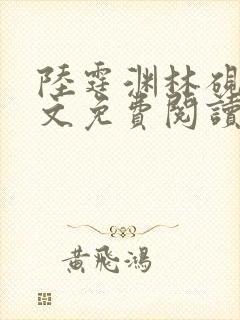 陸霆淵林硯
文免費閱讀
黃飛鴻